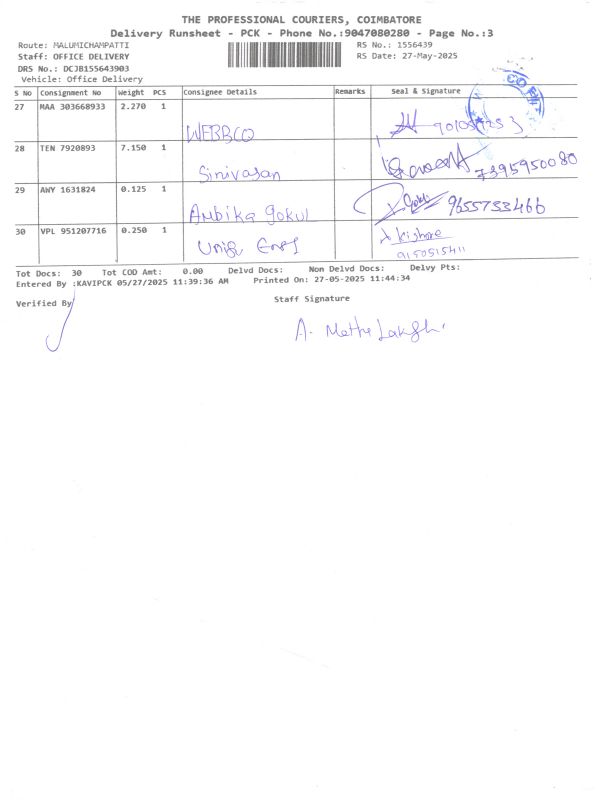 THE PROFESSIONAL COURIERS, COIMBATORE
Delivery Runsheet - PCK - Phone No.:9047080280 - Page No.:3
Route: MALUMICHAMPATTI RS No.: 1556439
Staff: OFFICE DELIVERY RS Date: 27-May-2025
DRS No.: DCJB155643903
Vehicle: Office Delivery
S No Consignment No Weight PCS Consignee Details Remarks Seal & Signature
27 MAA 303668933 2.270 1
WEBBCO
28 TEN 7920893 7.150 1
Sinivasan 7395950080
29 AWY 1631824 0.125 1
Ambika gokul Gokul 9655733466
30 VPL 951207716 0.250 1 Kishore
Uniq 9150515411
Tot Docs: 30 Tot COD Amt: 0.00 Delvd Docs: Non Delvd Docs: Delvy Pts:
Entered By :KAVIPCK 05/27/2025 11:39:36 AM Printed On: 27-05-2025 11:44:34
Verified By Staff Signature
A.